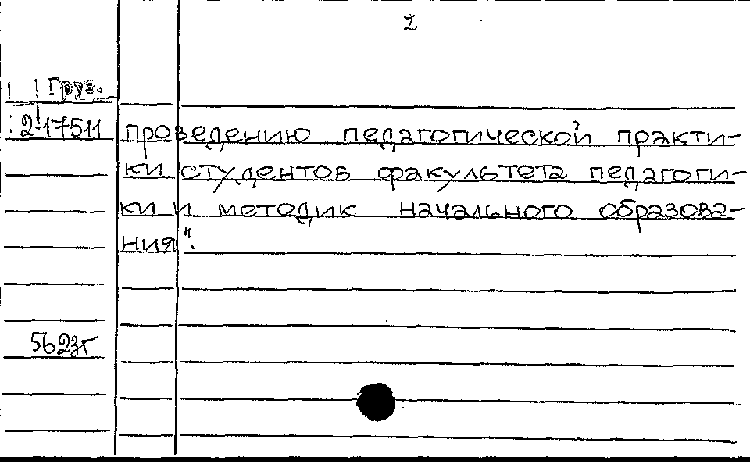 2
Груз.
2-17511
проведению педагогической практи-
ки студентов факультета педагоги-
ки и методик начального образова-
ния".
5623г